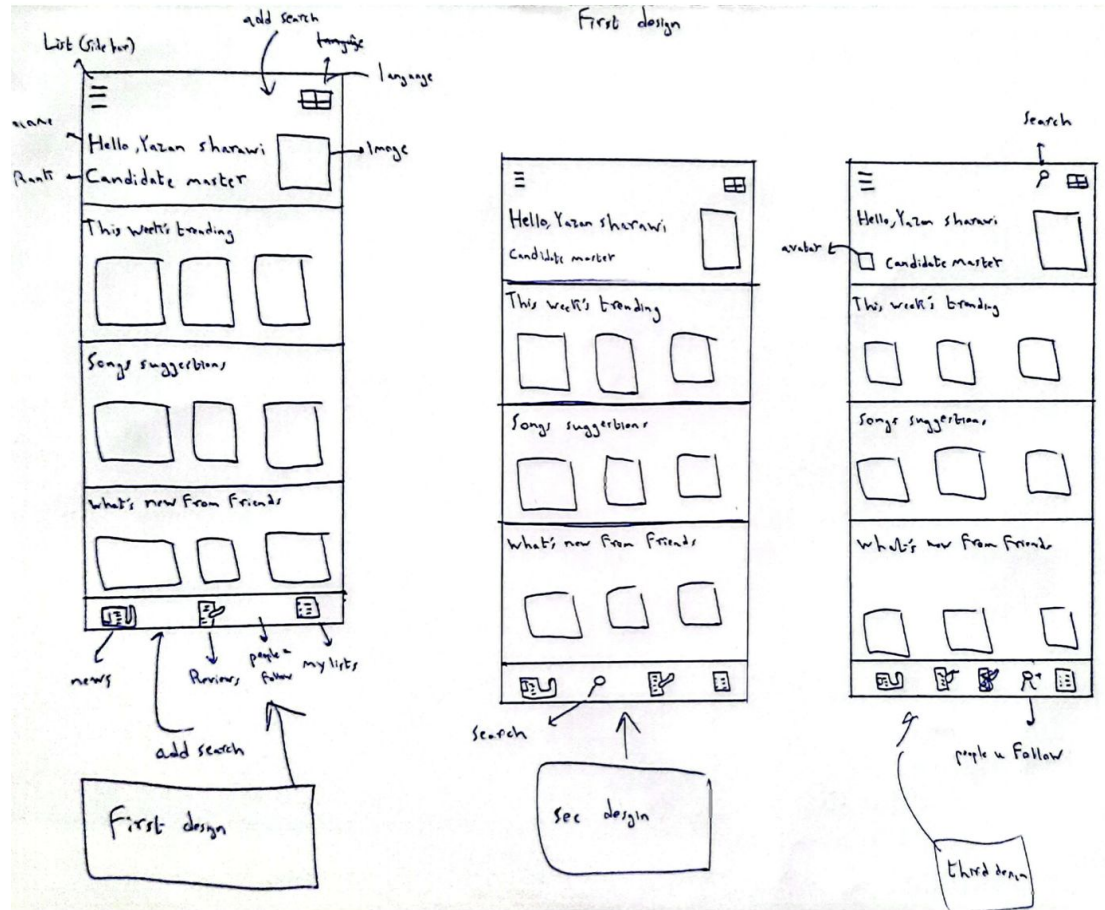 First design
add search
List (side bar)
language
name
Hello, Yazan sharawi
Image
Rank
Candidate master
This week's trending
Songs suggestions
What's new From Friends
news
Reviews
people u
Follow
my lists
add search
First design
Hello, Yazan sharawi
Candidate master
This week's trending
Songs suggestions
What's new From Friends
Search
Sec desgin
Search
Hello, Yazan sharawi
avatar
Candidate master
This week's trending
Songs suggestions
What's new From Friends
people u Follow
third design